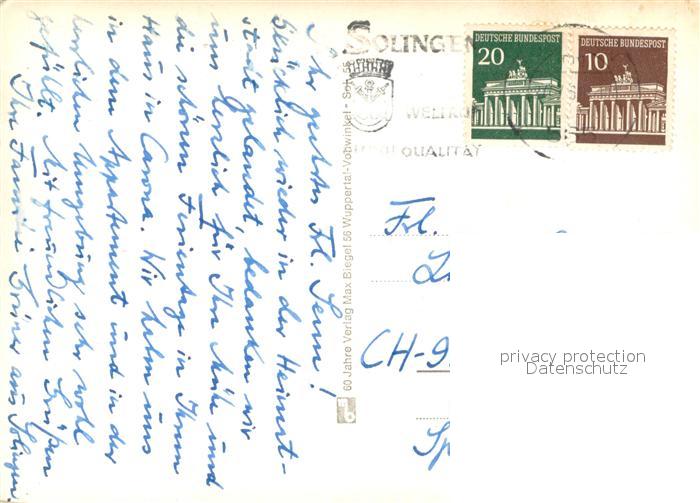 Sehr geehrtes Frl. Senn!
Glücklich wieder in der Heimat-
stadt gelandet, bedanken wir
uns herzlich für Ihre Mühe und
die schönen Ferientage in Ihrem
Haus in Carona. Wir haben uns
in dem Appartement und in der
herrlichen Umgebung sehr wohl
gefühlt. Mit freundlichen Grüßen
Ihre Familie aus Solingen
60 Jahre Verlag Max Biegel 56 Wuppertal-Vohwinkel - Sol. 56
SOLINGEN
WELT
QUALITÄT
DEUTSCHE BUNDESPOST
20
DEUTSCHE BUNDESPOST
10
Frl.
CH-9
privacy protection
Datenschutz